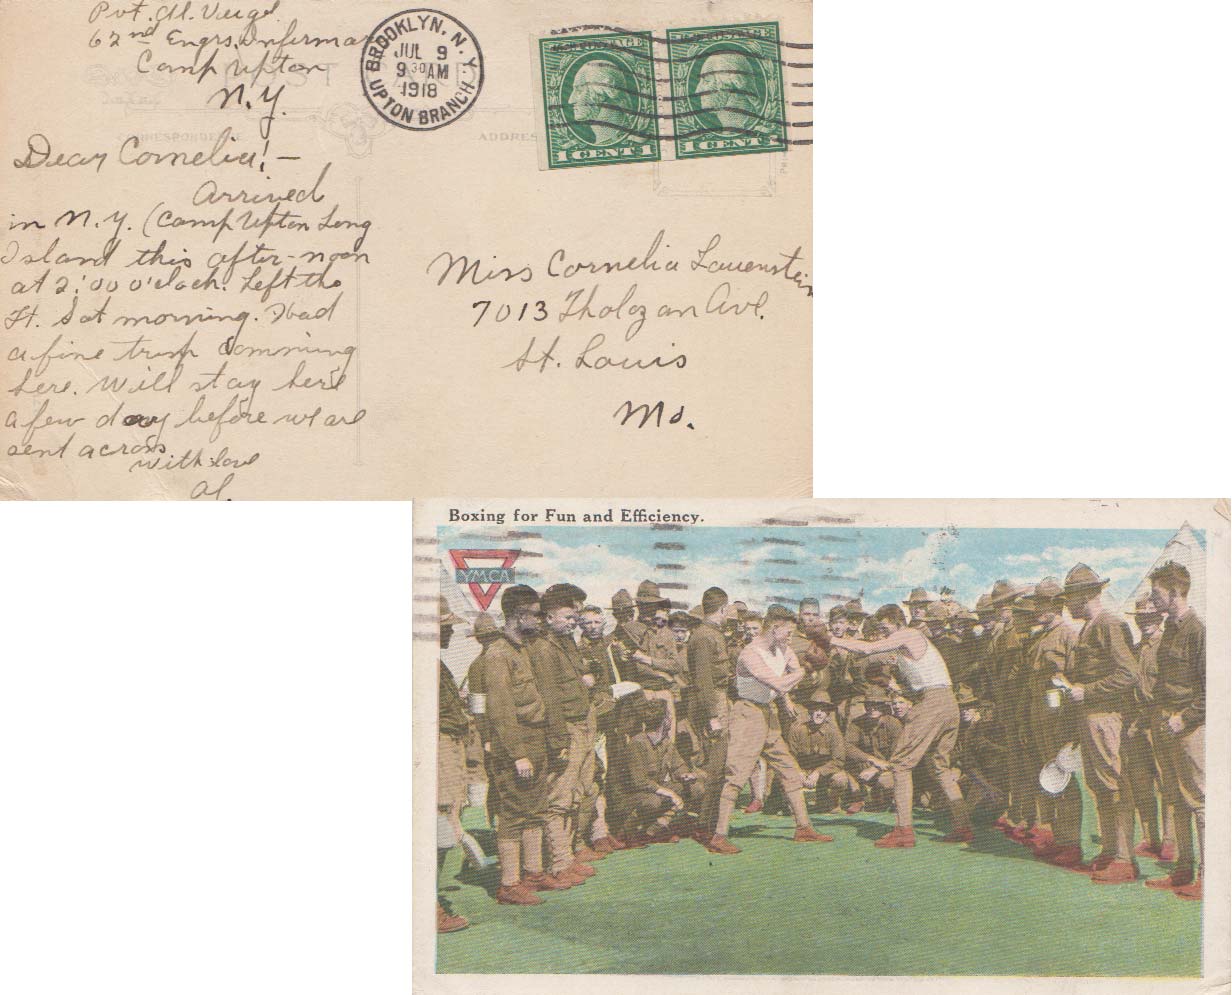 Pvt. Al. Viegel
62nd Engrs.
Camp Upton
N.Y.
BROOKLYN, N.Y.
JUL 9
9 30 AM
1918
UPTON BRANCH
U.S. POSTAGE
1 CENT 1
U.S. POSTAGE
1 CENT 1
POST CARD
CORRESPONDENCE
ADDRES
Dear Cornelia! —
Arrived
in N.Y. (Camp Upton Long
Island this after-noon
at 2:00 o'cloch. Left the
Ft. Sat morning. Had
a fine trip comming
here. Will stay here
a few day before we are
sent across
with love
Al.
Miss Cornelia Lauenstein
7013 Tholozan Ave.
St. Louis
Mo.
Boxing for Fun and Efficiency.
YMCA